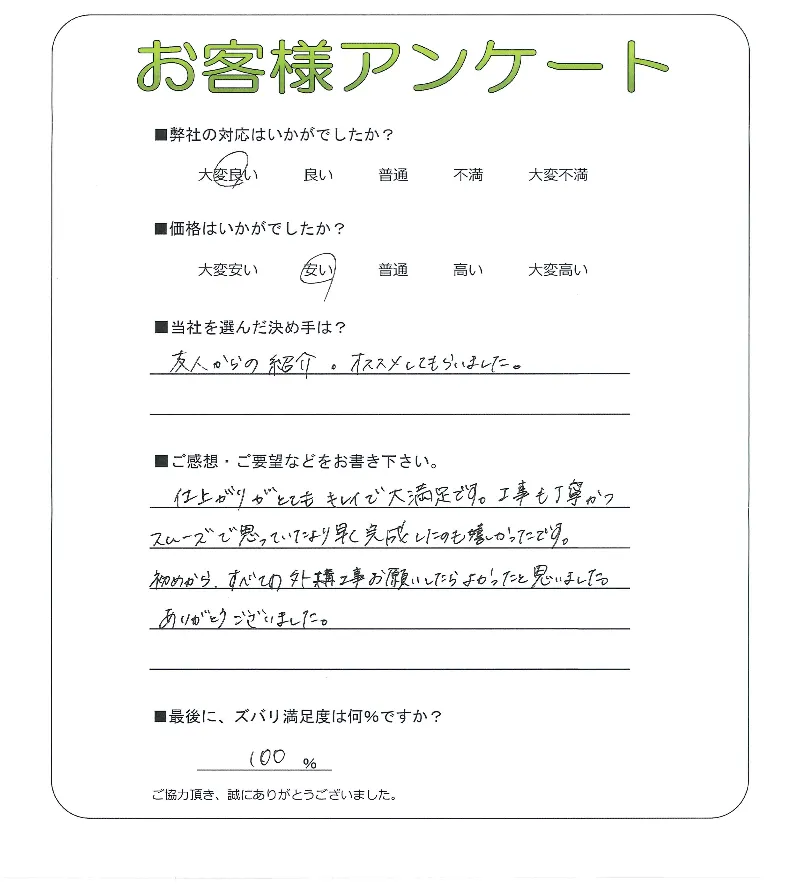 お客様アンケート
■弊社の対応はいかがでしたか？
大変良い 良い 普通 不満 大変不満
■価格はいかがでしたか？
大変安い 安い 普通 高い 大変高い
■当社を選んだ決め手は？
友人からの紹介。オススメしてもらいました。
■ご感想・ご要望などをお書き下さい。
仕上がりがとてもキレイで大満足です。工事も丁寧かつ
スムーズで思っていたより早く完成したのも嬉しかったです。
初めから、すべての外構工事お願いしたらよかったと思いました。
ありがとうございました。
■最後に、ズバリ満足度は何％ですか？
100 %
ご協力頂き、誠にありがとうございました。